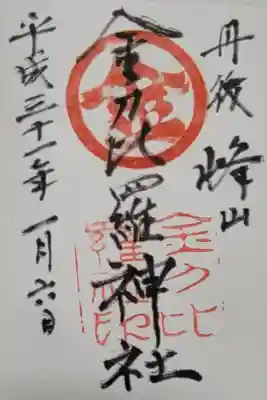 丹後 峰山
金刀比羅神社
平成三十一年一月六日
金
金刀比
羅神
社印